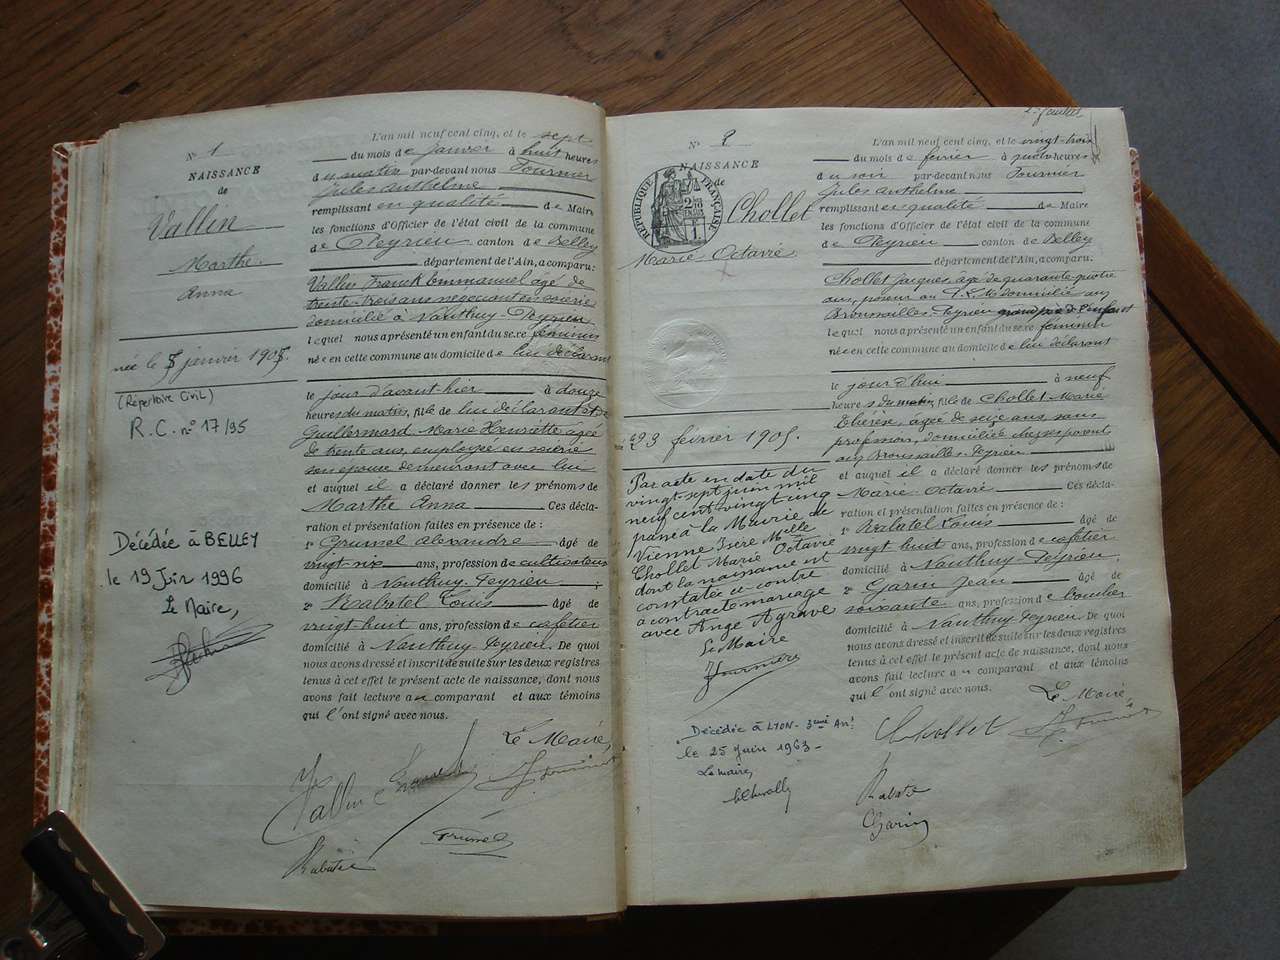 N° 1
NAISSANCE
de
Vallin
Marthe
Anna
née le 5 janvier 1905.
(Répertoire Civil)
R.C. n° 17/95
Décédée à BELLEY
le 19 Juin 1996
Le Maire,
L'an mil neuf cent cinq, et le sept
du mois de janvier à huit heures
du matin par-devant nous Fournier
Jules Anthelme
remplissant en qualité de Maire
les fonctions d'Officier de l'état civil de la commune
de Peyrieu canton de Belley
département de l'Ain, a comparu:
Vallin Franck Emmanuel âgé de
trente-trois ans négociant en soierie
domicilié à Nanthuy-Peyrieu
lequel nous a présenté un enfant du sexe féminin
née en cette commune au domicile de lui déclarant
le jour d'avant hier à douze
heures du matin, fille de lui déclarant et de
Guillermard Marie Henriette âgée
de trente ans, employée en soierie
son épouse demeurant avec lui
et auquel il a déclaré donner les prénoms de
Marthe Anna Ces décla-
ration et présentation faites en présence de :
1° Grumel Alexandre âgé de
vingt-six ans, profession de cultivateur
domicilié à Nanthuy-Peyrieu ;
2° Rabatel Louis âgé de
vingt huit ans, profession de cafetier
domicilié à Nanthuy Peyrieu. De quoi
nous avons dressé et inscrit de suite sur les deux registres
tenus à cet effet le présent acte de naissance, dont nous
avons fait lecture au comparant et aux témoins
qui l'ont signé avec nous.
Le Maire,
Vallin
Grumel
Rabatel
2e feuillet
N° 2
NAISSANCE
de
RÉPUBLIQUE FRANÇAISE
Chollet
Marie Octavie
née 23 février 1905.
Par acte en date du
vingt sept juin mil
neuf cent vingt cinq
passé à la Mairie de
Vienne Isère Melle
Chollet Marie Octavie
dont la naissance est
constatée ci-contre
a contracté mariage
avec Ange Agrave
Le Maire
J Fournier
Décédée à LYON - 3ème Arrt
le 25 Juin 1963 -
Le maire,
L'an mil neuf cent cinq, et le vingt-trois
du mois de février à quatre heures
du soir par-devant nous Fournier
Jules Anthelme
remplissant en qualité de Maire
les fonctions d'Officier de l'état civil de la commune
de Peyrieu canton de Belley
département de l'Ain, a comparu:
Chollet Jacques âgé de quarante-quatre
ans, poseur au P.L.M. domicilié aux
Broussailles-Peyrieu grand père de l'enfant
lequel nous a présenté un enfant du sexe féminin
née en cette commune au domicile de lui déclarant
le jour d'hui à neuf
heures du matin, fille de Chollet Marie
Thérèse, âgée de seize ans sans
profession, domiciliée chez ses parents
aux Broussailles-Peyrieu
et auquel il a déclaré donner les prénoms de
Marie-Octavie Ces décla-
ration et présentation faites en présence de :
1° Rabatel Louis âgé de
vingt huit ans, profession de cafetier
domicilié à Nanthuy-Peyrieu,
2° Garin Jean âgé de
soixante ans, profession de bouclier
domicilié à Nanthuy Peyrieu. De quoi
nous avons dressé et inscrit de suite sur les deux registres
tenus à cet effet le présent acte de naissance, dont nous
avons fait lecture au comparant et aux témoins
qui l'ont signé avec nous.
Le Maire
Chollet
J Fournier
Rabatel
Garin